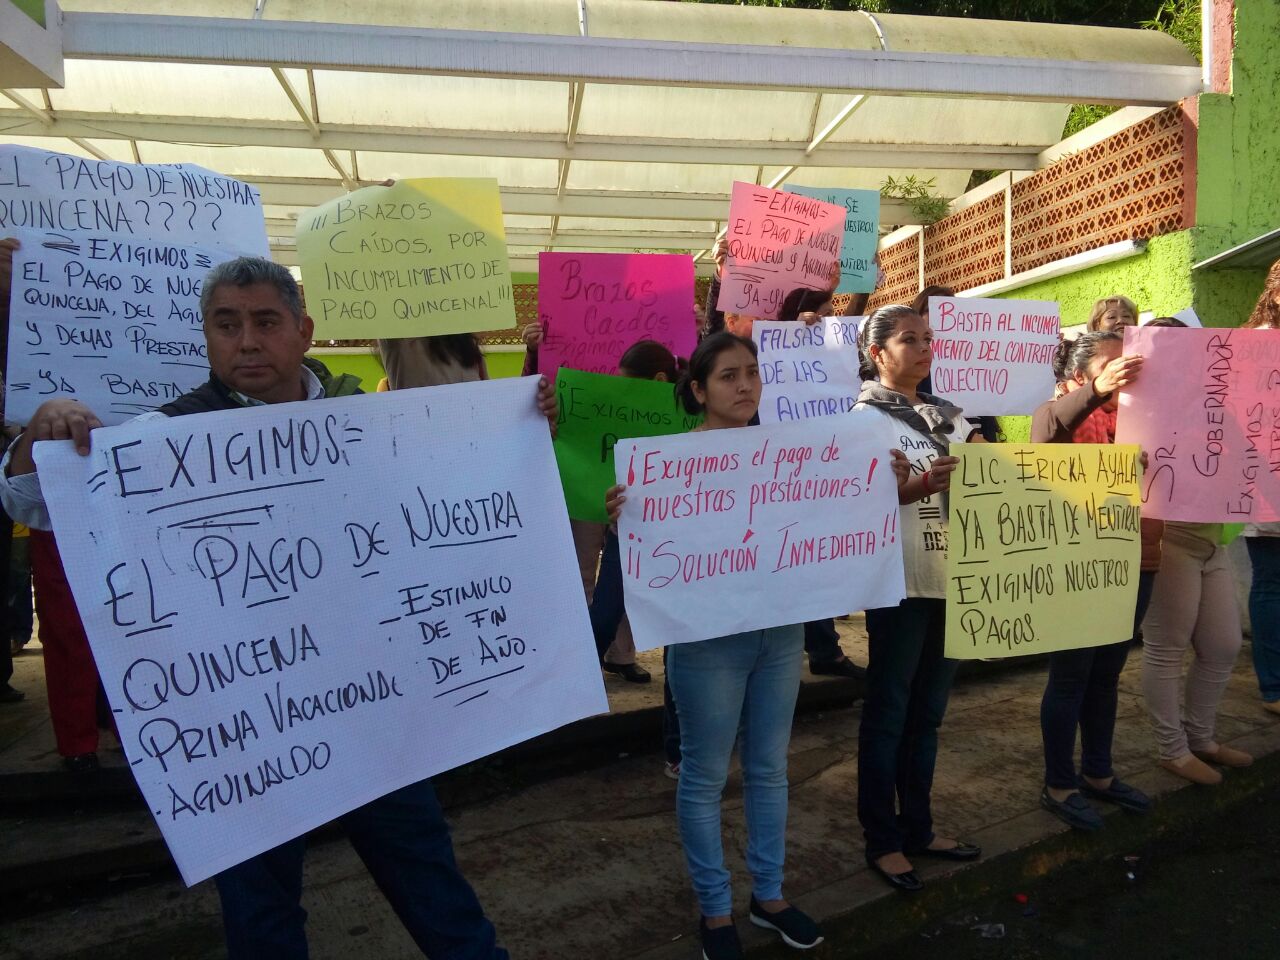 EL PAGO DE NUESTRA
QUINCENA????
= EXIGIMOS =
EL PAGO DE
QUINCENA, DEL
Y DEMAS
= YA BASTA
¡¡¡ BRAZOS
CAÍDOS, POR
INCUMPLIMIENTO DE
PAGO QUINCENAL!!!
Brazos
Caedos
Exigimos
= EXIGIMOS =
EL PAGO DE NUESTRA
QUINCENA Y
YA-YA
SE
FALSAS
DE LAS
BASTA AL INCUMPL
MIENTO DEL CONTRATO
COLECTIVO
¡EXIGIMOS
SR. GOBERNADOR
EXIGIMOS
=EXIGIMOS=
EL PAGO DE NUESTRA
- QUINCENA
- PRIMA VACACIONAL
- AGUINALDO
- ESTIMULO
DE FIN
DE AÑO.
¡Exigimos el pago de
nuestras prestaciones!
¡¡ SOLUCIÓN INMEDIATA!!
LIC. ERICKA AYALA
YA BASTA DE MENTIRAS
EXIGIMOS NUESTROS
PAGOS.